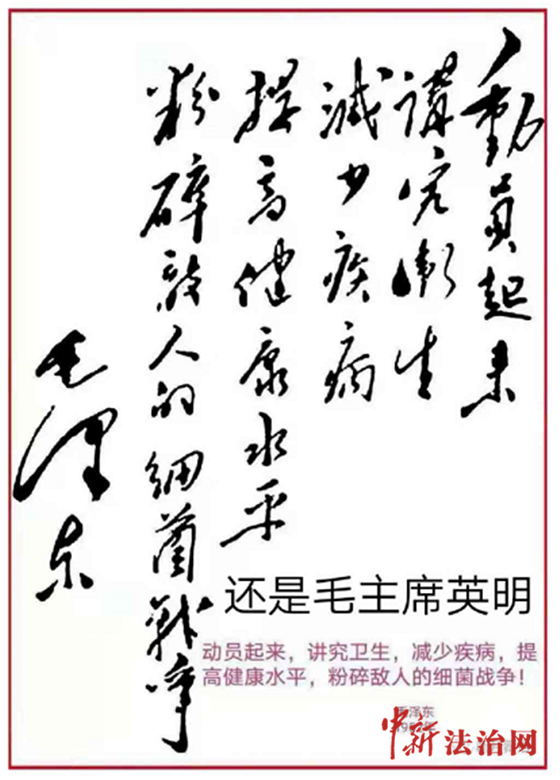 動員起来
講究衛生
減少疾病
提高健康水平
粉碎敌人的细菌战争
毛泽东
还是毛主席英明
动员起来，讲究卫生，减少疾病，提
高健康水平，粉碎敌人的细菌战争！
毛泽东
中新法治网